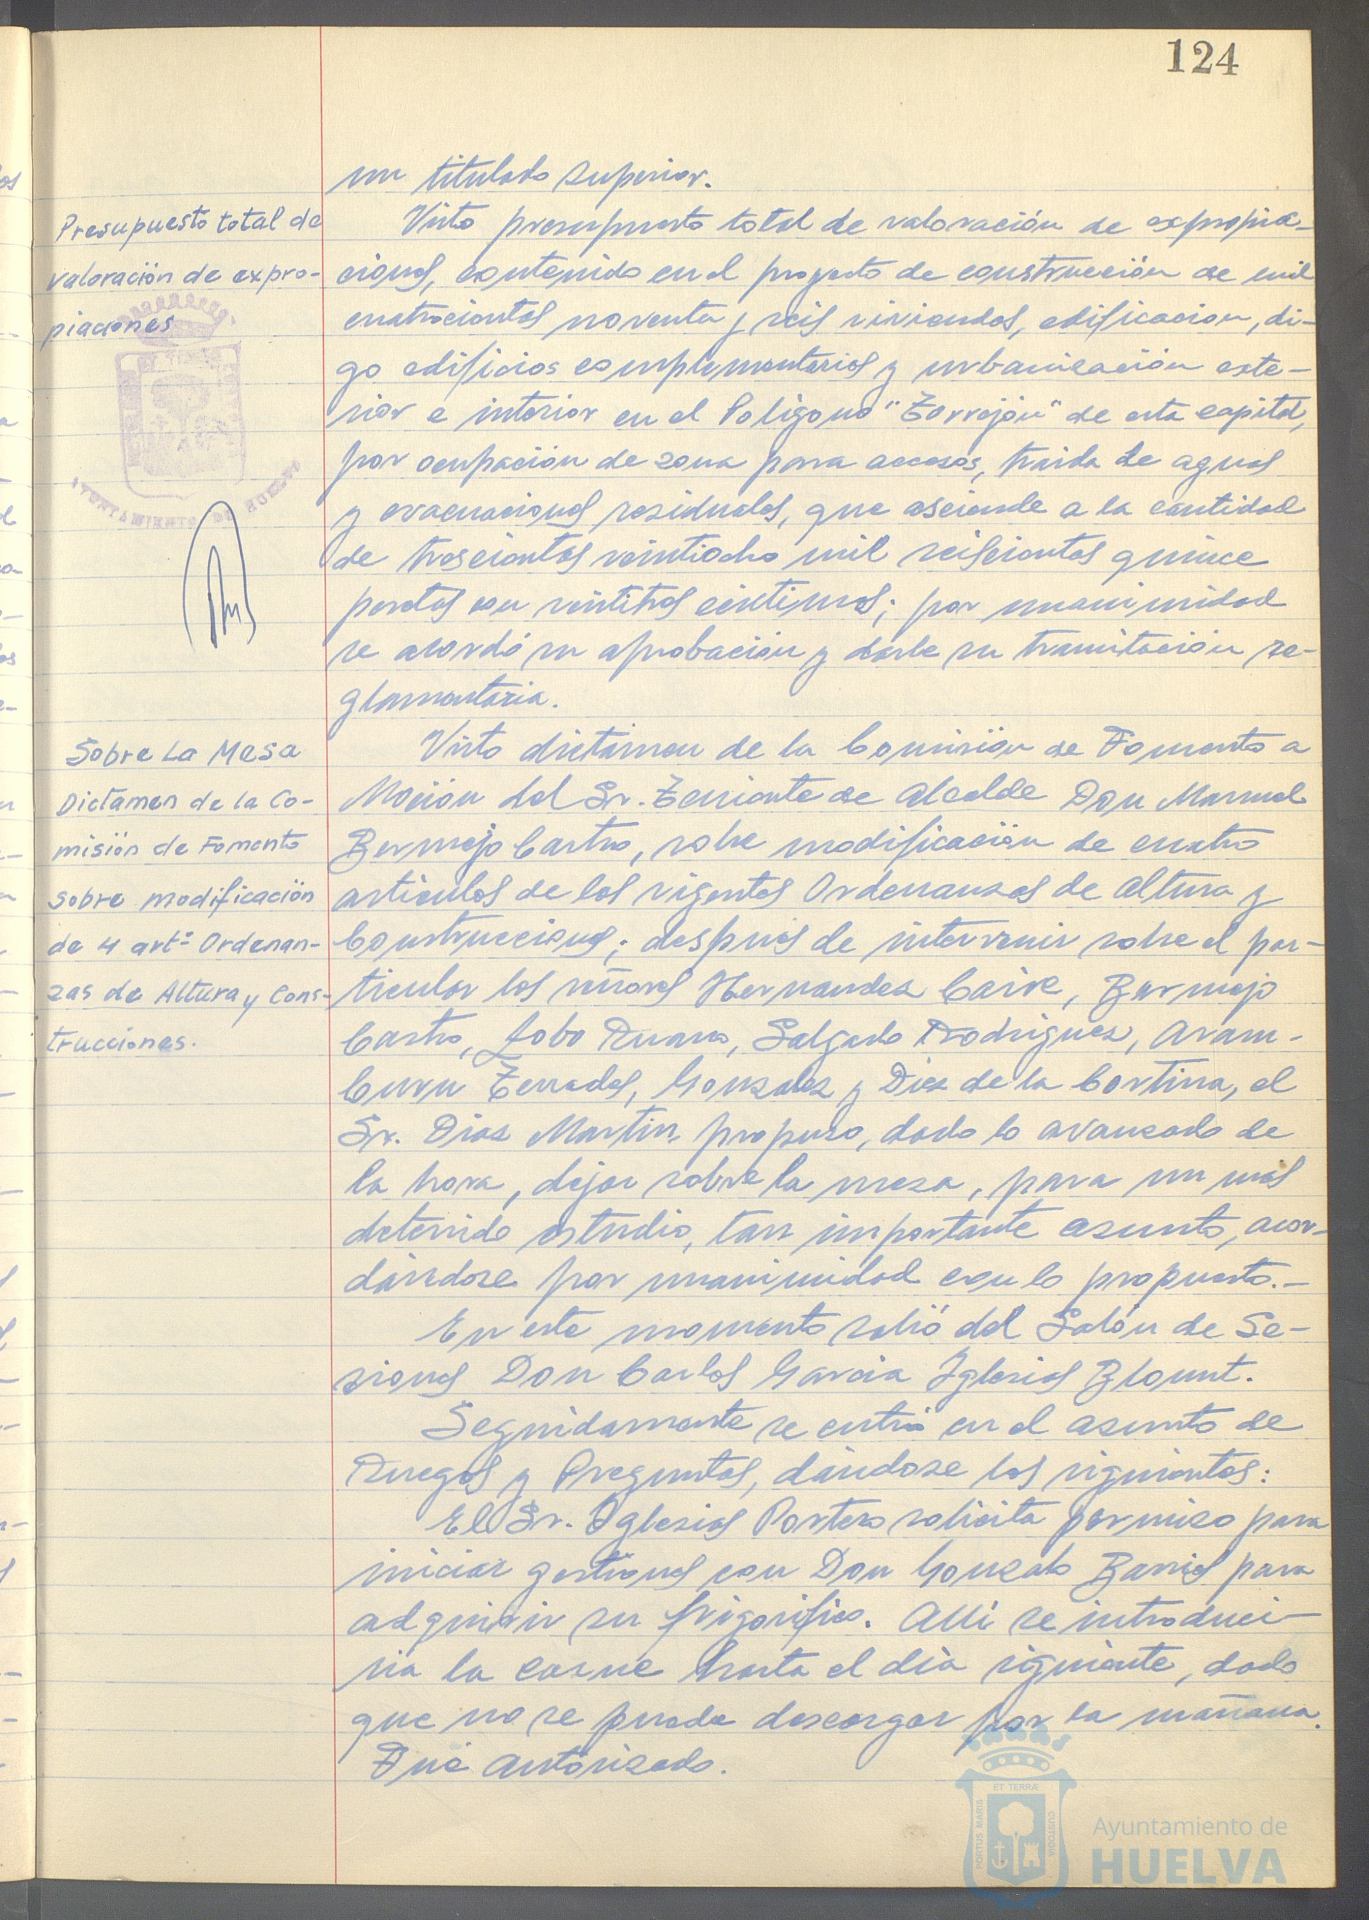 124
un titulado superior.
Presupuesto total de
valoración de expro-
piaciones
Visto presupuesto total de valoración de expropia-
ciones, contenido en el proyecto de construcción de mil
cuatrocientas noventa y seis viviendas, edificacion, di-
go edificios complementarios y urbanización exte-
rior e interior en el Poligono "Torrejón" de esta capital,
por ocupación de zona para accesos, traida de aguas
y evacuaciones residuales, que asciende a la cantidad
de trescientas veintiocho mil seiscientas quince
pesetas con veintitres centimos; por unanimidad
se acordó su aprobación y darle su tramitación re-
glamentaria.
AYUNTAMIENTO DE HUELVA
Sobre La Mesa
Dictamen de la Co-
misión de Fomento
sobre modificación
de 4 artº Ordenan-
zas de Altura y Cons-
trucciones.
Visto dictamen de la Comisión de Fomento a
Moción del Sr. Teniente de Alcalde Don Manuel
Bermejo Castro, sobre modificación de cuatro
articulos de las vigentes Ordenanzas de Altura y
Construcciones; después de intervenir sobre el par-
ticular los señores Hernandez Caire, Bermejo
Castro, Lobo Ruano, Salgado Rodriguez, Aram-
buru Terrades, Gonzalez y Diez de la Cortina, el
Sr. Dias Martin propuso, dado lo avanzado de
la hora, dejar sobre la mesa, para un más
detenido estudio, tan importante asunto, acor-
dándose por unanimidad con lo propuesto.-
En este momento salió del Salón de Se-
siones Don Carlos Garcia Iglesias Blount.
Seguidamente se entró en el asunto de
Ruegos y Preguntas, dándose los siguientes:
El Sr. Iglesias Portero solicita permiso para
iniciar gestiones con Don Gonzalo Barrios para
adquirir su frigorifico. Alli se introduci-
ria la carne hasta el dia siguiente, dado
que no se puede descargar por la mañana.
Fué autorizado.
ET TERRÆ
PORTUS MARIS
CUSTODIA
Ayuntamiento de
HUELVA